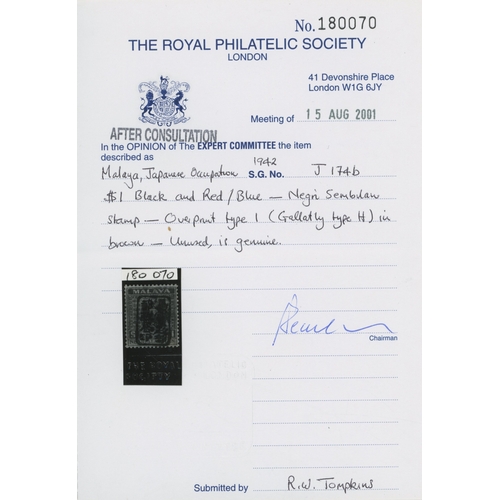 No. 180070
THE ROYAL PHILATELIC SOCIETY
LONDON
41 Devonshire Place
London W1G 6JY
Meeting of 15 AUG 2001
AFTER CONSULTATION
In the OPINION of The EXPERT COMMITTEE the item
described as
Malaya, Japanese Occupation 1942 S.G. No. J 174b
$1 Black and Red/Blue — Negri Sembilan
stamp — Overprint type 1 (Gallatly type H) in
brown — Unused, is genuine.
180 070
MALAYA
THE ROYAL
Chairman
Submitted by R.W. Tompkins